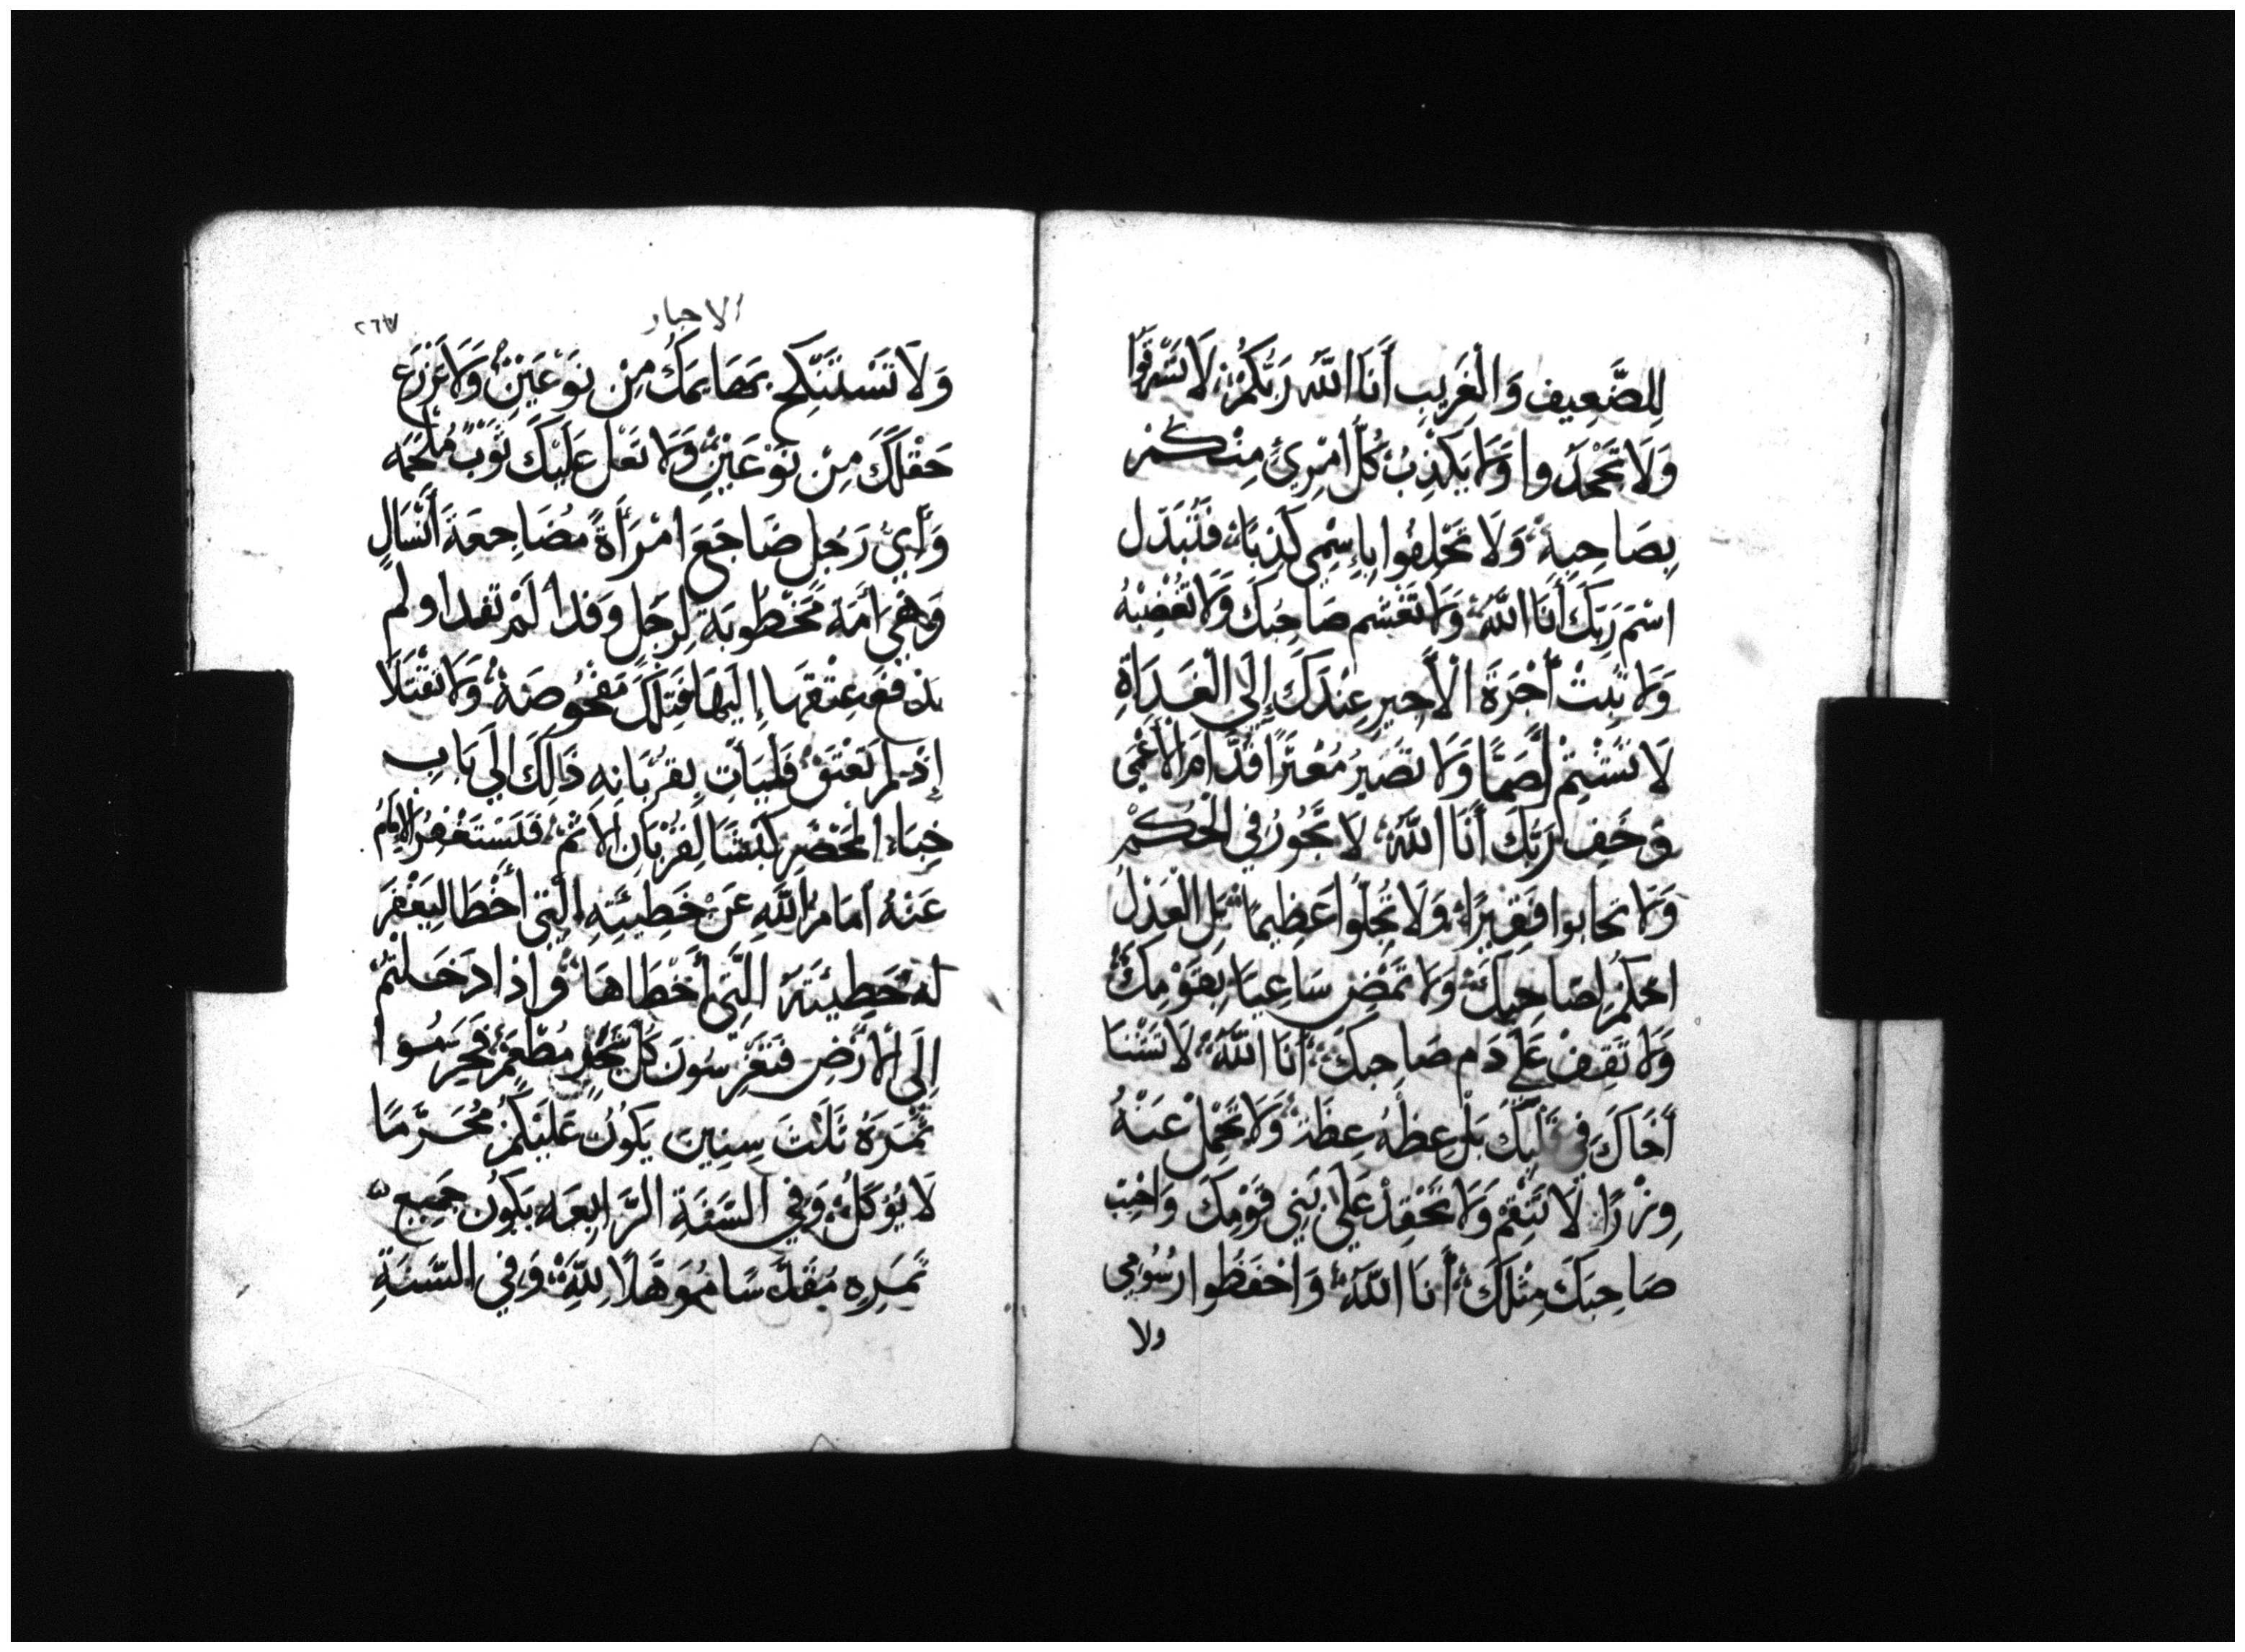 لِلضَّعِيفِ وَالْغَرِيبِ أَنَا اللَّهُ رَبُّكُمْ لَا تَسْرِقُوا
وَلَا تَجْحَدُوا وَلَا يَكْذِبُ كُلُّ امْرِئٍ مِنْكُمْ
بِصَاحِبِهِ وَلَا تَحْلِفُوا بِاسْمِي كَذِبًا فَتُبَدِّلَ
اسْمَ رَبِّكَ أَنَا اللَّهُ وَلَا تَغْشِم صَاحِبَكَ وَلَا تَغْضِبْهُ
وَلَا تَبِتْ أُجْرَةُ الْأَجِيرِ عِنْدَكَ إِلَى الْغَدَاةِ
لَا تَشْتِمْ أَصَمًّا وَلَا تُصَيِّرْ مُعْثِرًا قُدَّامَ الْأَعْمَى
وَخَفْ رَبَّكَ أَنَا اللَّهُ لَا تَجُورُ فِي الْحُكْمِ
وَلَا تحابوا فَقِيرًا وَلَا تُجِلُّوا عَظِيمًا بَلْ الْعَدْلُ
احْكُمْ لِصَاحِبِكَ وَلَا تَمْضِ سَاعِيًا بِقَوْمِكَ
وَلَا تَقِفْ عَلَى دَمِ صَاحِبِكَ أَنَا اللَّهُ لَا تَشْنَا
أَخَاكَ فِي قَلْبِكَ بَلْ عِظْهُ عِظَةً وَلَا تَحْمِلْ عَنْهُ
وِزْرًا لَا تَنْقِمْ وَلَا تَحْقِدْ عَلَى بَنِي قَوْمِكَ وَاحِبّ
صَاحِبَكَ مِثْلَكَ أَنَا اللَّهُ وَاحْفَظُوا رُسُومِي
ولا
الاحبار
٢٦٧
وَلَا تَسْتَنْكِحْ بَهَايِمَكَ مِنْ نَوْعَيْنِ وَلَا تَزْرَعْ
حَقْلَكَ مِنْ نَوْعَيْنِ وَلَا تَعْلُ عَلَيْكَ ثَوْبٌ مُلْحَمَه
وَأَيُّ رَجُلٍ ضَاجَعَ امْرَأَةً مُضَاجِعَةَ أَنْسَالٍ
وَهْيَ أَمَةٌ مَخْطُوبَة لِرَجُلٍ وَفدا لَمْ تفدا ولم
يدفع عِتْقهَا إِلَيْهَا فَتِلْكَ مَفْحُوصَةٌ وَلَا تقْتَلَا
إِذْ لم تُعْتَقْ فَلْيَأْتِ بِقُرْبَانِهِ ذَالِكَ إِلَى بَابِ
خِبَاءِ الْمَحْضَرِ كَبْشًا لِقُرْبَانِ الْإِثْمِ فَلْيَسْتَغْفِرُ الْإِمَامُ
عَنْهُ أَمَامَ اللَّهِ عَنْ خَطِيئَتِهِ الَّتِي أَخْطَا لِيَغْفِرَ
لَهُ خَطِيئَتَهُ الَّتِي أَخْطَاهَا وَإِذَا دَخَلْتُمْ
إِلَى الْأَرْضِ فَتَغْرِسُونَ كُلَّ شَجَرٍ مُطْعِمٍ فَحَرِّسُوا
ثَمَرَهُ ثَلَثَ سِنِينَ يَكُونُ عَلَيْكُمْ مُحَرَّمًا
لَا يُؤكَلْ وَفِي السَّنَةِ الرَّابِعَه يَكُونُ جَمِيع
ثَمَرِهِ مُقَدَّسًا مُوَهَّلًا لِلَّهِ وَفِي السَّنَةِ